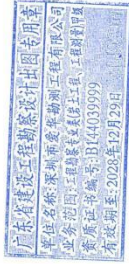 广东省建设工程勘察设计出图专用章
单位名称:深圳市爱华勘测工程有限公司
业务范围:工程勘察专业类岩土工程、工程测量甲级
资质证书编号:B144039999
有效期至:2028年12月29日